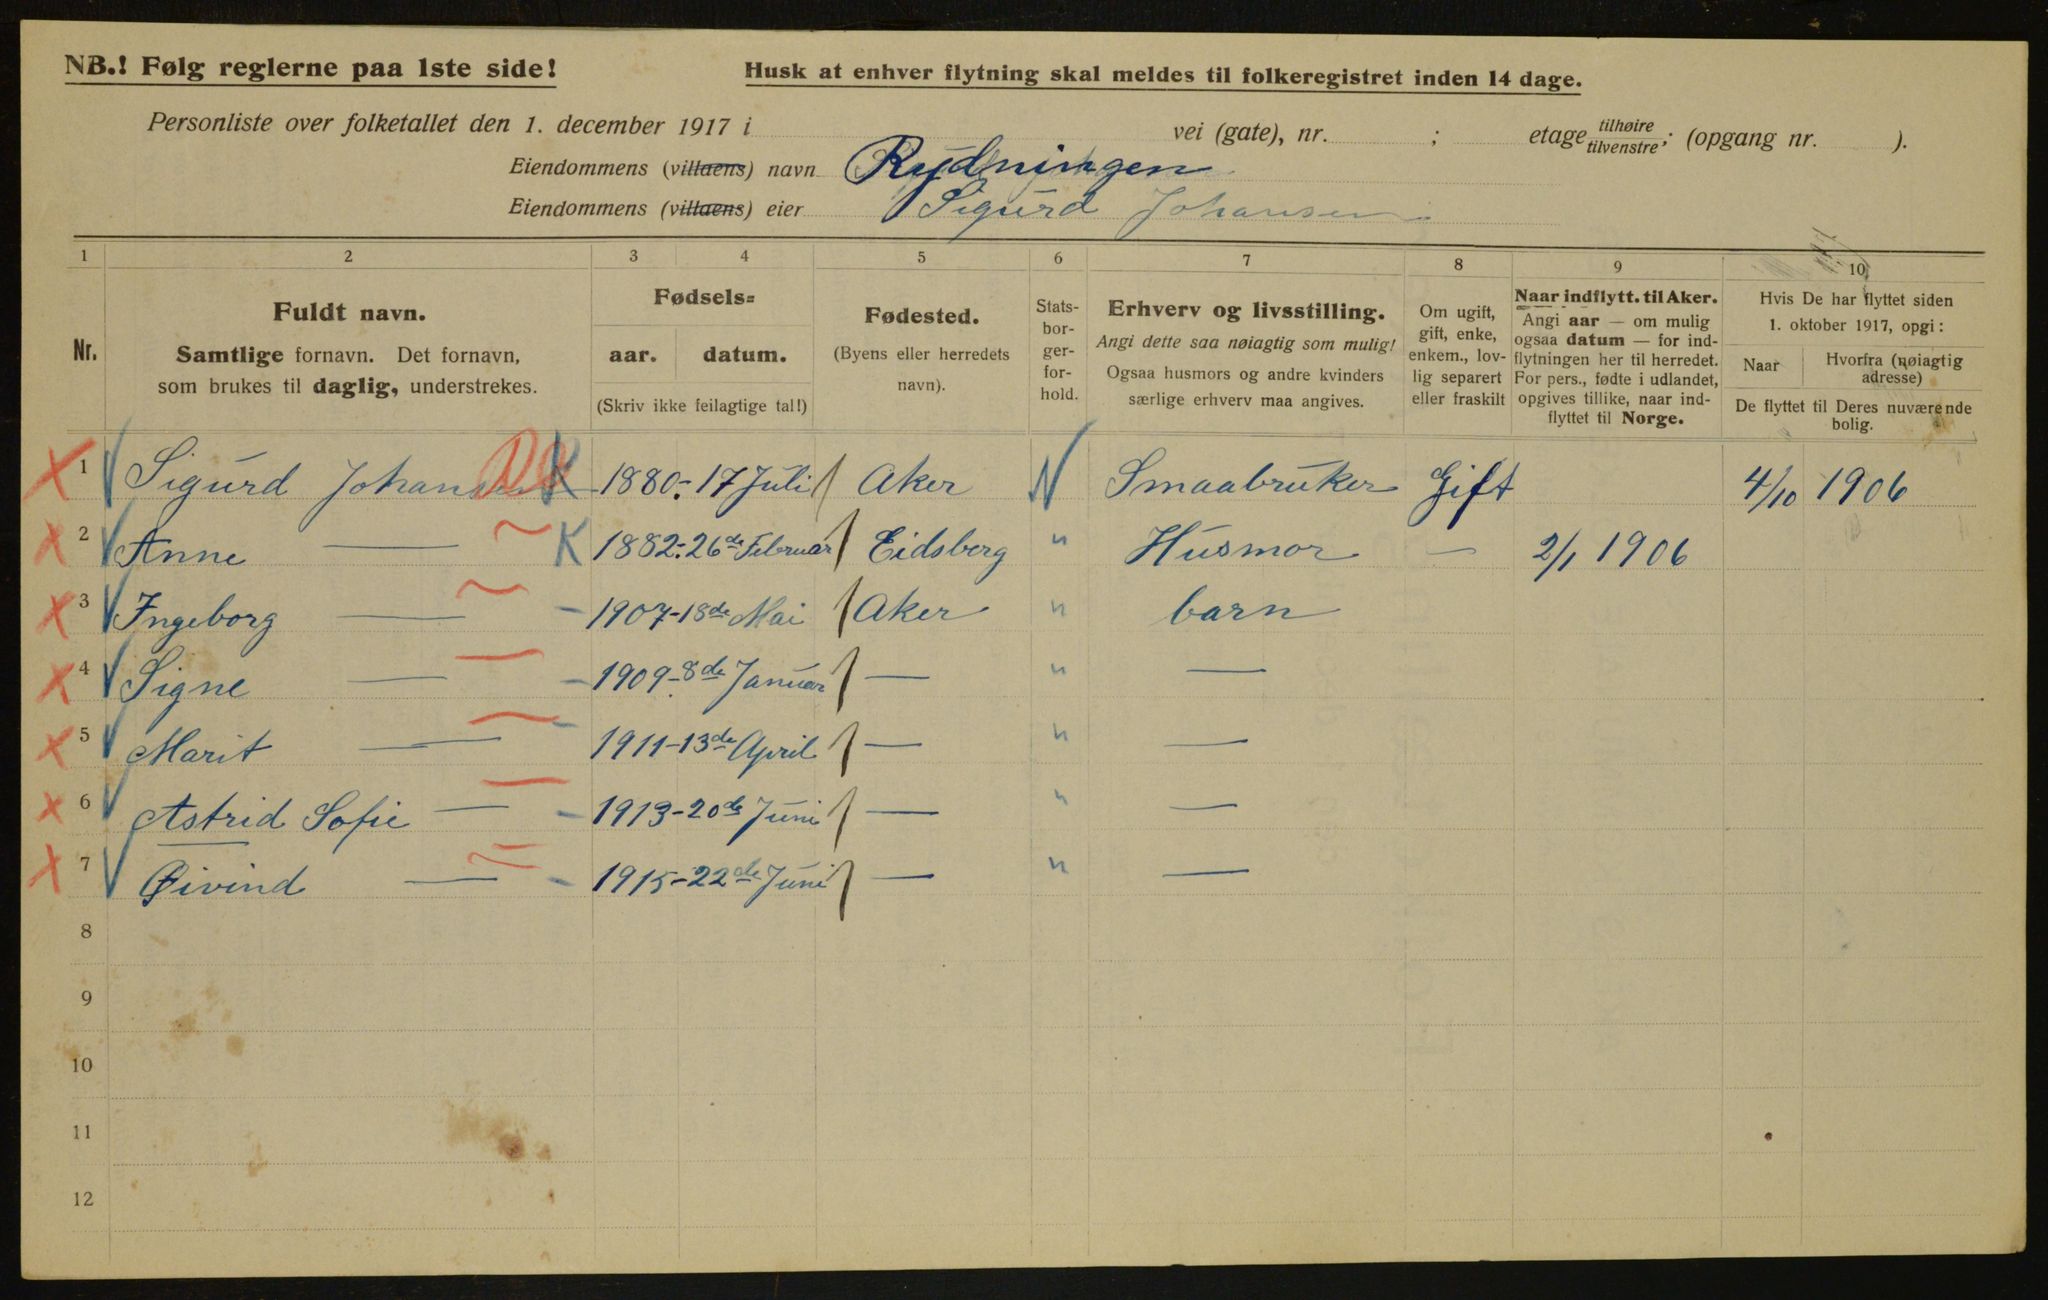 NB.! Følg reglerne paa 1ste side!
Husk at enhver flytning skal meldes til folkeregistret inden 14 dage.
Personliste over folketallet den 1. december 1917 i vei (gate), nr. ; etage tilhøire tilvenstre; (opgang nr. ).
Eiendommens (villaens) navn Rydningen
Eiendommens (villaens) eier Sigurd Johansen
1 2 3 4 5 6 7 8 9 10
Nr.
Fuldt navn.
Samtlige fornavn. Det fornavn,
som brukes til daglig, understrekes.
Fødsels=
aar. datum.
(Skriv ikke feilagtige tal!)
Fødested.
(Byens eller herredets
navn).
Stats-
bor-
ger-
for-
hold.
Erhverv og livsstilling.
Angi dette saa nøiagtig som mulig!
Ogsaa husmors og andre kvinders
særlige erhverv maa angives.
Om ugift,
gift, enke,
enkem., lov-
lig separert
eller fraskilt
Naar indflytt. til Aker.
Angi aar — om mulig
ogsaa datum — for ind-
flytningen her til herredet.
For pers., fødte i udlandet,
opgives tillike, naar ind-
flyttet til Norge.
Hvis De har flyttet siden
1. oktober 1917, opgi:
Naar
Hvorfra (nøiagtig
adresse)
De flyttet til Deres nuværende
bolig.
1 Sigurd Johansen K 1880 - 17 Juli Aker N Smaabruker Gift 4/10 1906
2 Anne — K 1882 - 26de Februar Eidsberg " Husmor — 2/1 1906
3 Ingeborg — - 1907 - 18de Mai Aker " barn
4 Signe — - 1909 - 8de Januar — " —
5 Marit — - 1911 - 13de April — " —
6 Astrid Sofie — - 1913 - 20de Juni — " —
7 Øivind — - 1915 - 22de Juni — " —
8
9
10
11
12